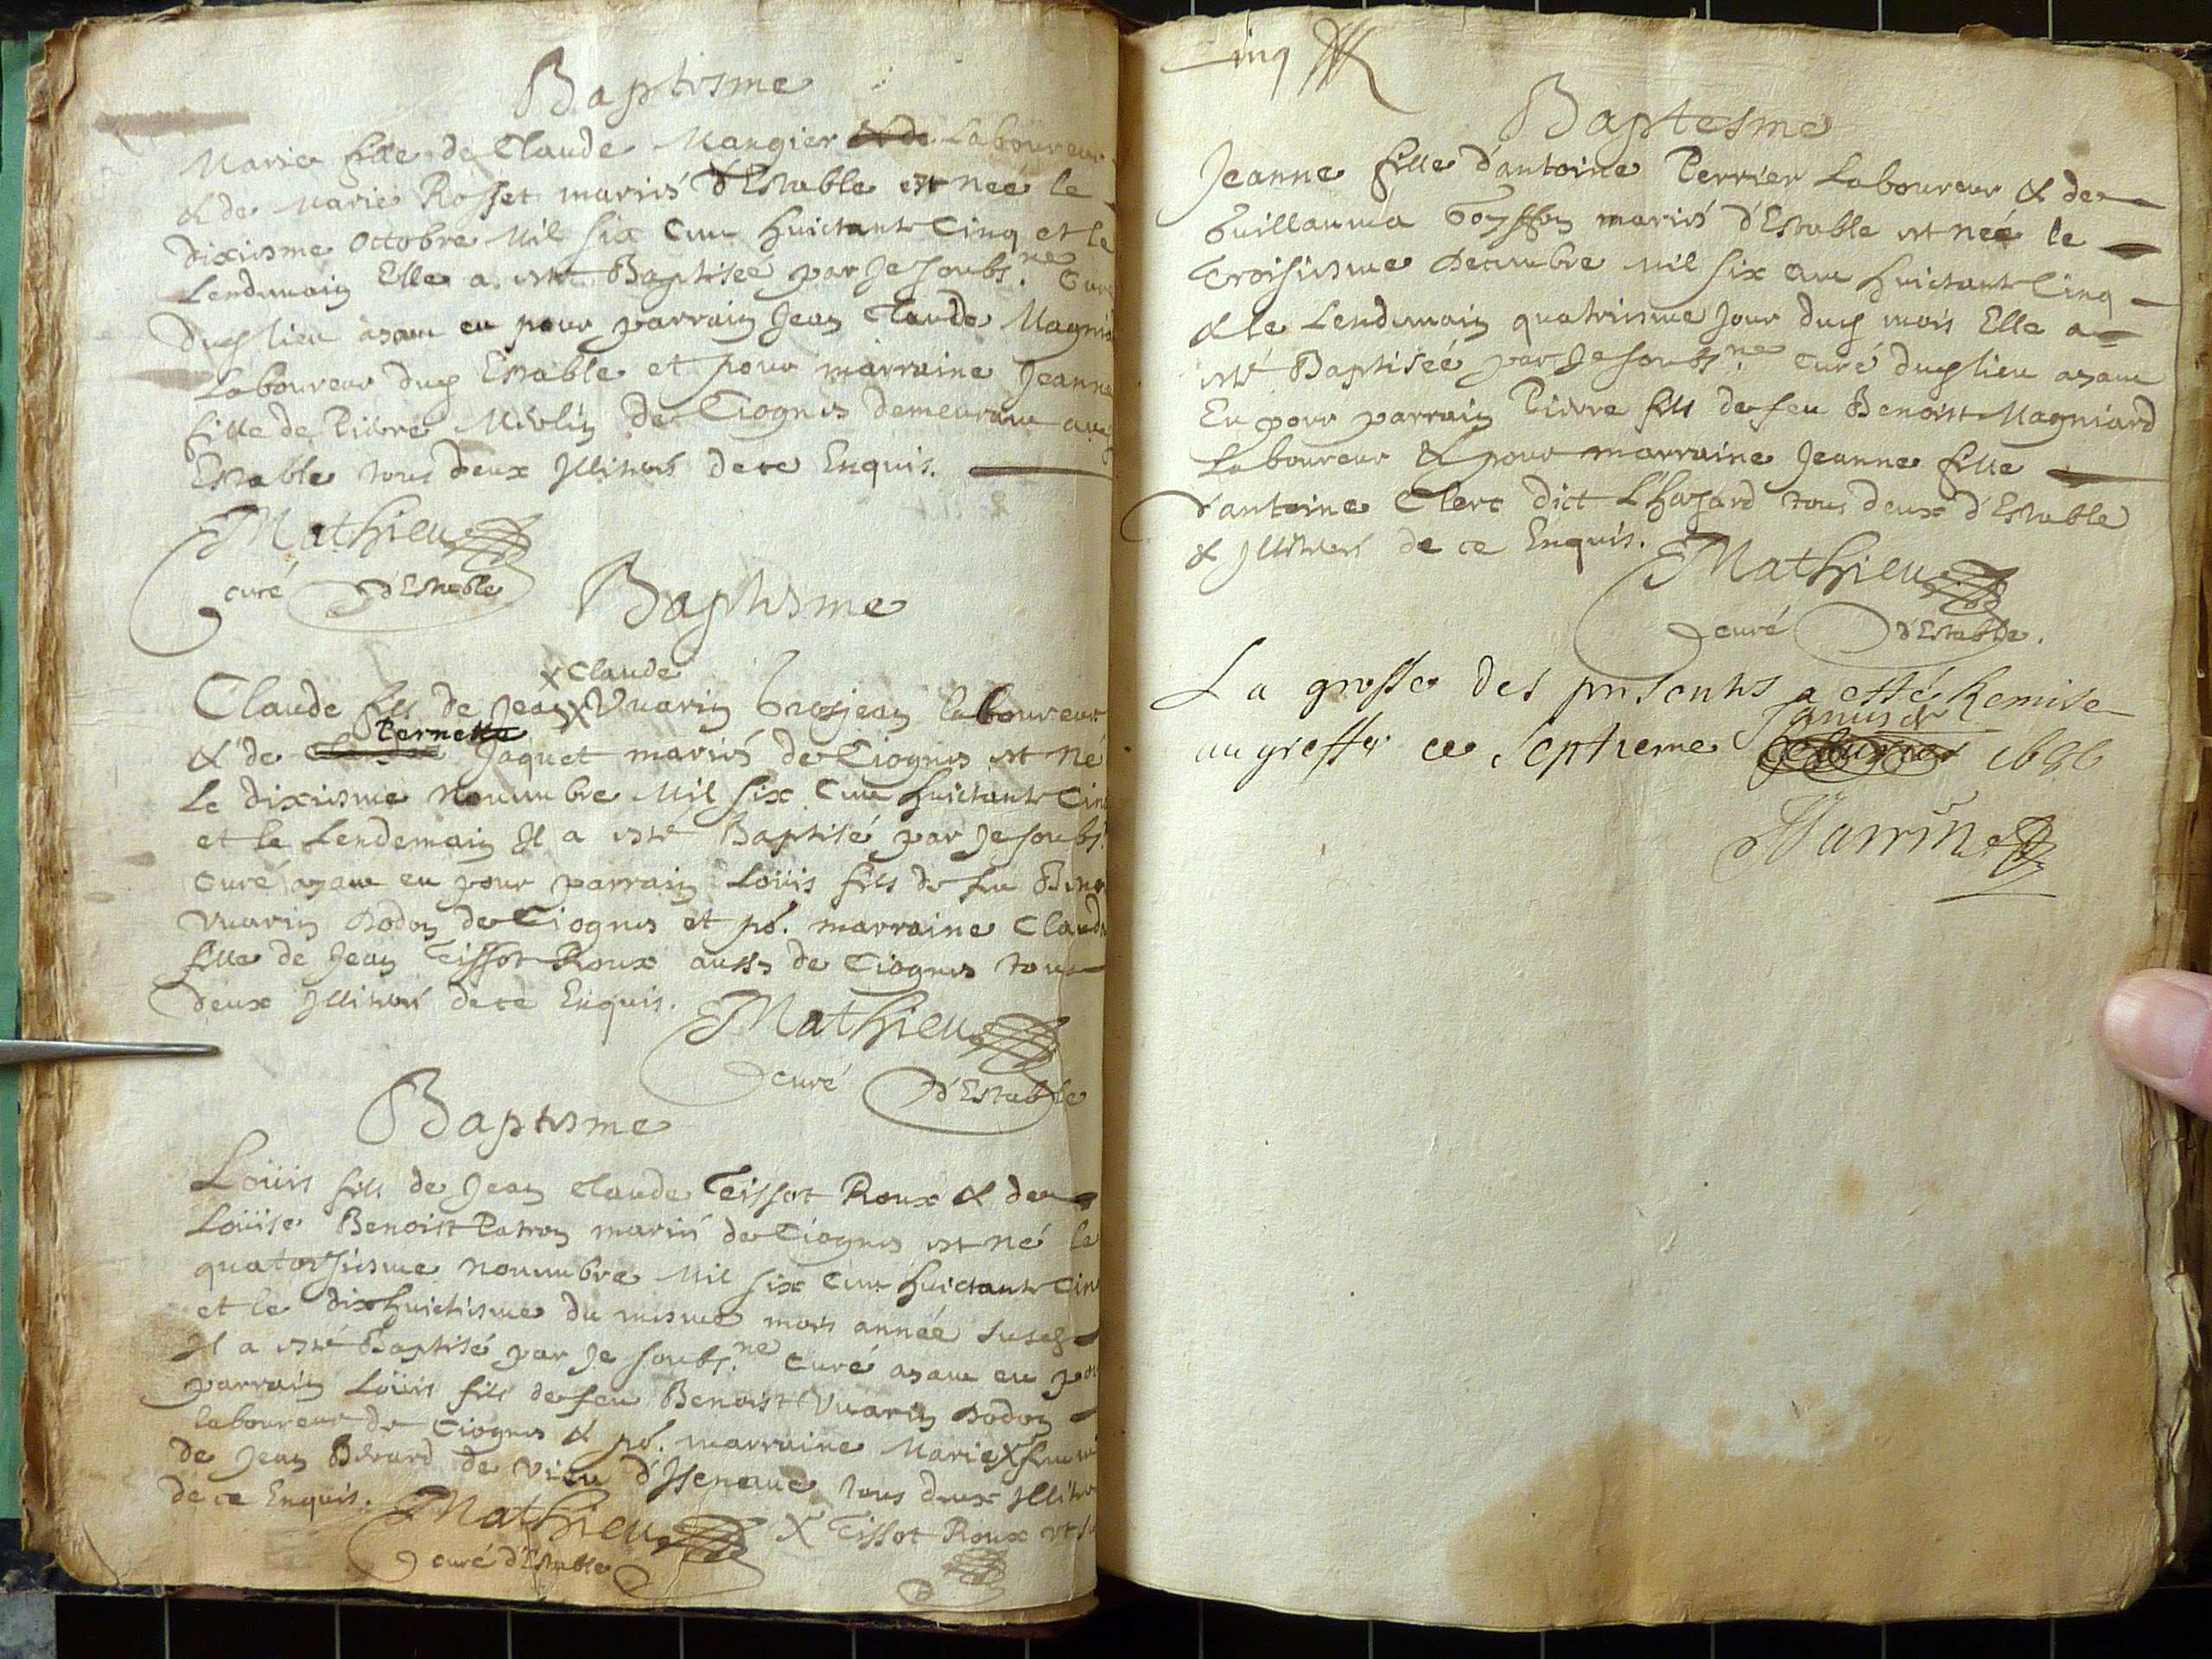 Baptesme
Marie fille de Claude Mangier & de Laboureur
& de Marie Rosset mariés d'Estable est née le
dixiesme Octobre Mil six Cent huictante Cinq et le
Lendemain Elle a esté Baptisée par Je soubs.né Curé
dud lieu ayant eu pour parrain Jean Claude
Laboureur dud Estable et pour marraine Jeanne
fille de Pierre de Ciognes demeurant aud
Estable tous deux Illiterés de ce Enquis.
Mathieu
curé d'Estable
Baptesme
x Claude
Claude fils de Jean x Vuarin Grosjean laboureur
Pernette
& de Jaquet mariés de Ciognes est né
Le dixiesme Nouembre Mil six Cent huictante Cinq
et le Lendemain Il a esté Baptisé par Je soubs.
Curé ayant eu pour parrain Loüis fils de feu
Vuarin Dodon de Ciognes et po. marraine
fille de Jean Tissot Roux aussy de Ciognes tous
deux Illiterés de ce Enquis.
Mathieu
curé d'Estable
Baptesme
Loüis fils de Jean Claude Tissot Roux & de
Loüise Benoist Patron mariés de Ciognes est né le
quatorziesme nouembre Mil six Cent huictante Cinq
et le dixhuictiesme du mesme mois année susd
Il a esté Baptisé par Je soubs.né Curé ayant eu
parrain Loüis fils de feu Benoist Vuarin Dodon
laboureur de Ciognes & po. marraine Marie x
de Jean de Vieu d'Isenaue tous deux
de ce Enquis.
Mathieu x Tissot Roux
curé d'Estable
Cinq
Baptesme
Jeanne fille d'antoine Perrier Laboureur & de
Guillauma mariés d'Estable est née le
Troisiesme Decembre Mil six Cent huictante Cinq
& le Lendemain quatriesme Jour dud mois Elle a
esté Baptisée par Je soubs.né Curé dud lieu ayant
Eu pour parrain Pierre fils de feu Benoist Magniard
Laboureur & pour marraine Jeanne fille
d'antoine Clerc dict L'hazard tous deux d'Estable
& Illiterés de ce Enquis.
Mathieu
curé d'Estable.
La grosse des presents a esté Remise
Januier
au greffe ce Septieme 1686